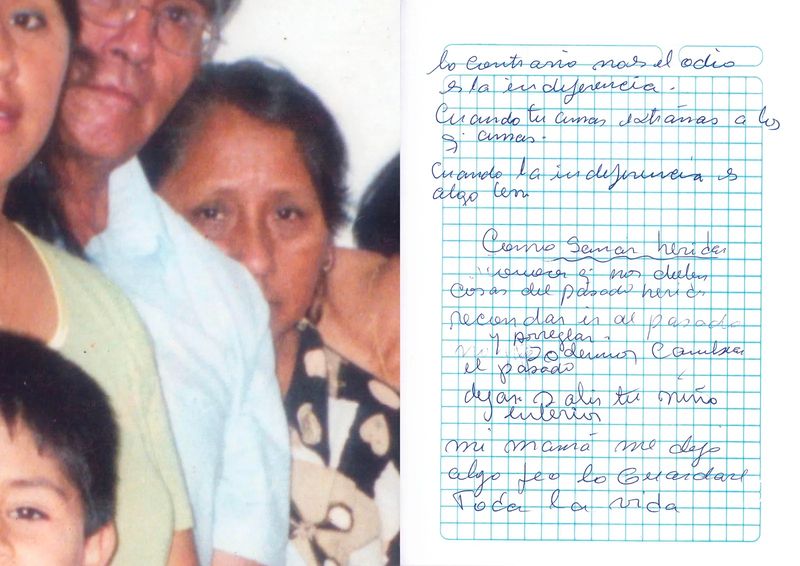 lo contrario no es el odio
es la indeferencia.
Cuando tu amas extrañas a los
q' amas.
Cuando la indeferencia es
algo
Como Sanar heridas
q' nos duelen
cosas del pasado
recordar ir al pasado
y arreglar.
Podemos Cambiar
el pasado
dejar Salir tu niño
interior
mi mamá me dejo
algo feo lo Guardare
Toda la vida